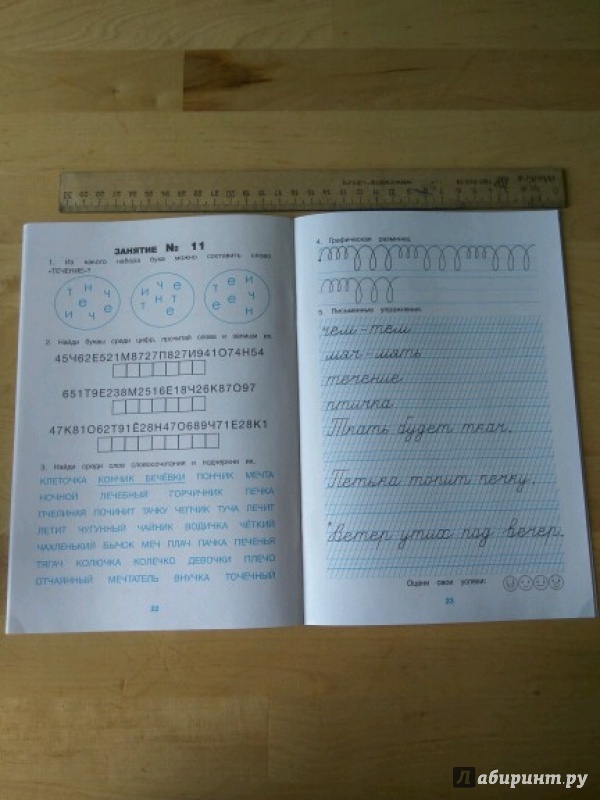 ЗАНЯТИЕ № 11
1. Из какого набора букв можно составить слово
«ТЕЧЕНИЕ»?
т н ч
е е
и ч е
и ч е
т н т
е
т е и
е е ч
н
2. Найди буквы среди цифр, прочитай слова и запиши их.
45Ч62Е521М8727П827И941О74Н54
651Т9Е238М2516Е18Ч26К87О97
47К81О62Т91Ё28Н47О689Ч71Е28К1
3. Найди среди слов словосочетания и подчеркни их.
КЛЕТОЧКА КОНЧИК БЕЧЁВКИ ПОНЧИК МЕЧТА
НОЧНОЙ ЛЕЧЕБНЫЙ ГОРЧИЧНИК ПЕЧКА
ПЧЕЛИНАЯ ПОЧИНИТ ТАЧКУ ЧЕПЧИК ТУЧА ЛЕЧИТ
ЛЕТИТ ЧУГУННЫЙ ЧАЙНИК ВОДИЧКА ЧЁТКИЙ
ЧАХЛЕНЬКИЙ БЫЧОК МЕЧ ПЛАЧ ПАЧКА ПЕЧЕНЬЯ
ТЯГАЧ КОЛЮЧКА КОЛЕЧКО ДЕВОЧКИ ПЛЕЧО
ОТЧАЯННЫЙ МЕЧТАТЕЛЬ ВНУЧКА ТОЧЕЧНЫЙ
22
4. Графическая разминка.
5. Письменные упражнения.
чем - тем
мяч - мять
течение
птичка
Ткать будет ткач.
Петька топит печку.
Ветер утих под вечер.
Оцени свои успехи:
23
Лабиринт.ру